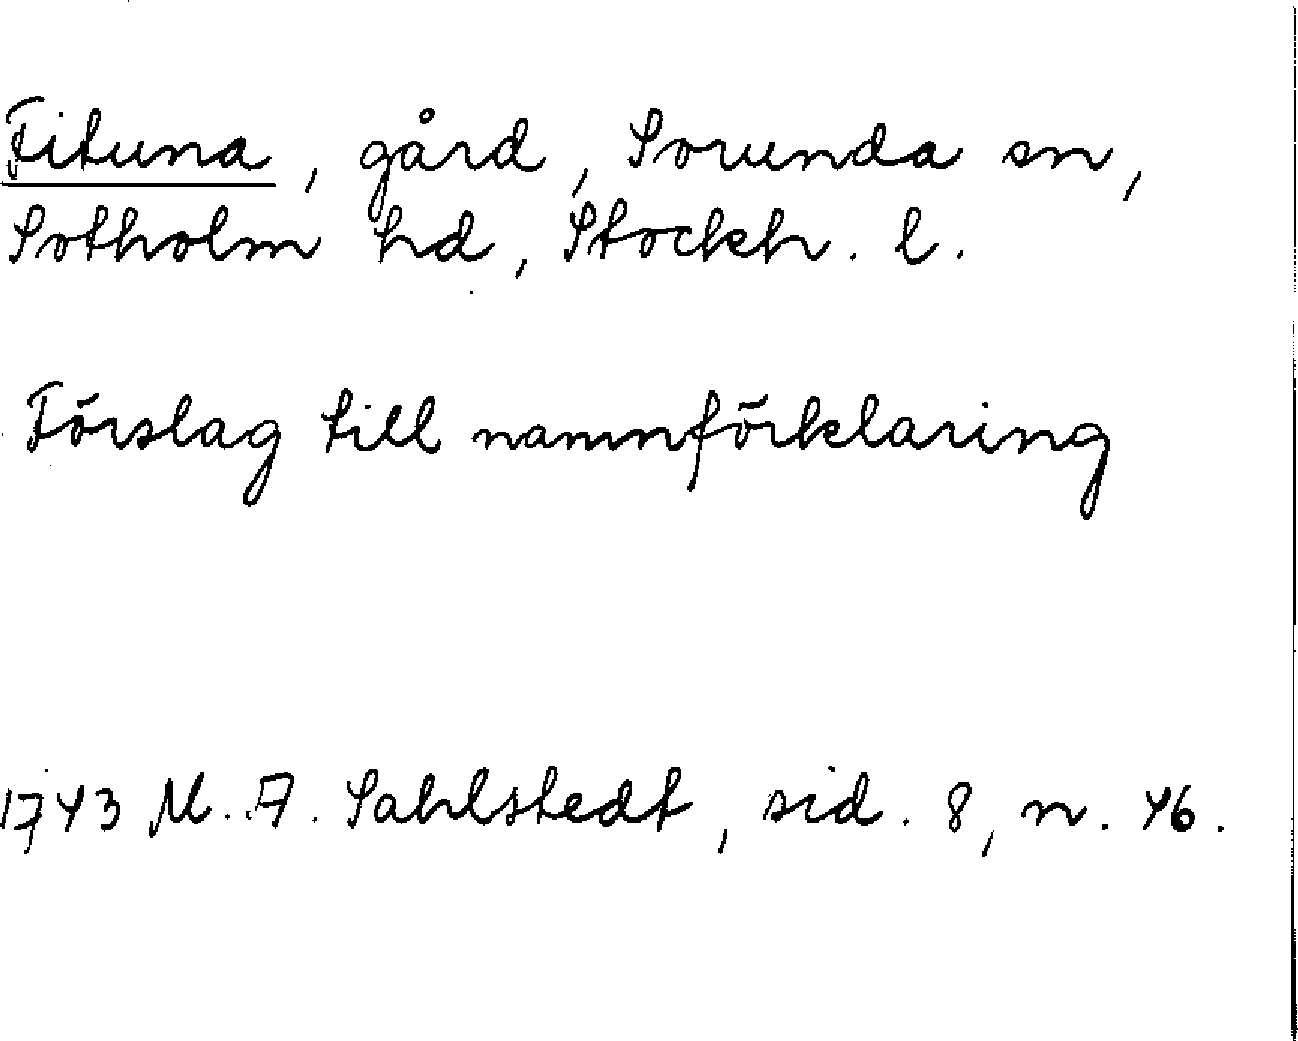 Fituna, gård, Sorunda sn,
Sotholm hd, Stockh. l.
Förslag till namnförklaring
1743 M. A. Sahlstedt, sid. 8, n. 46.